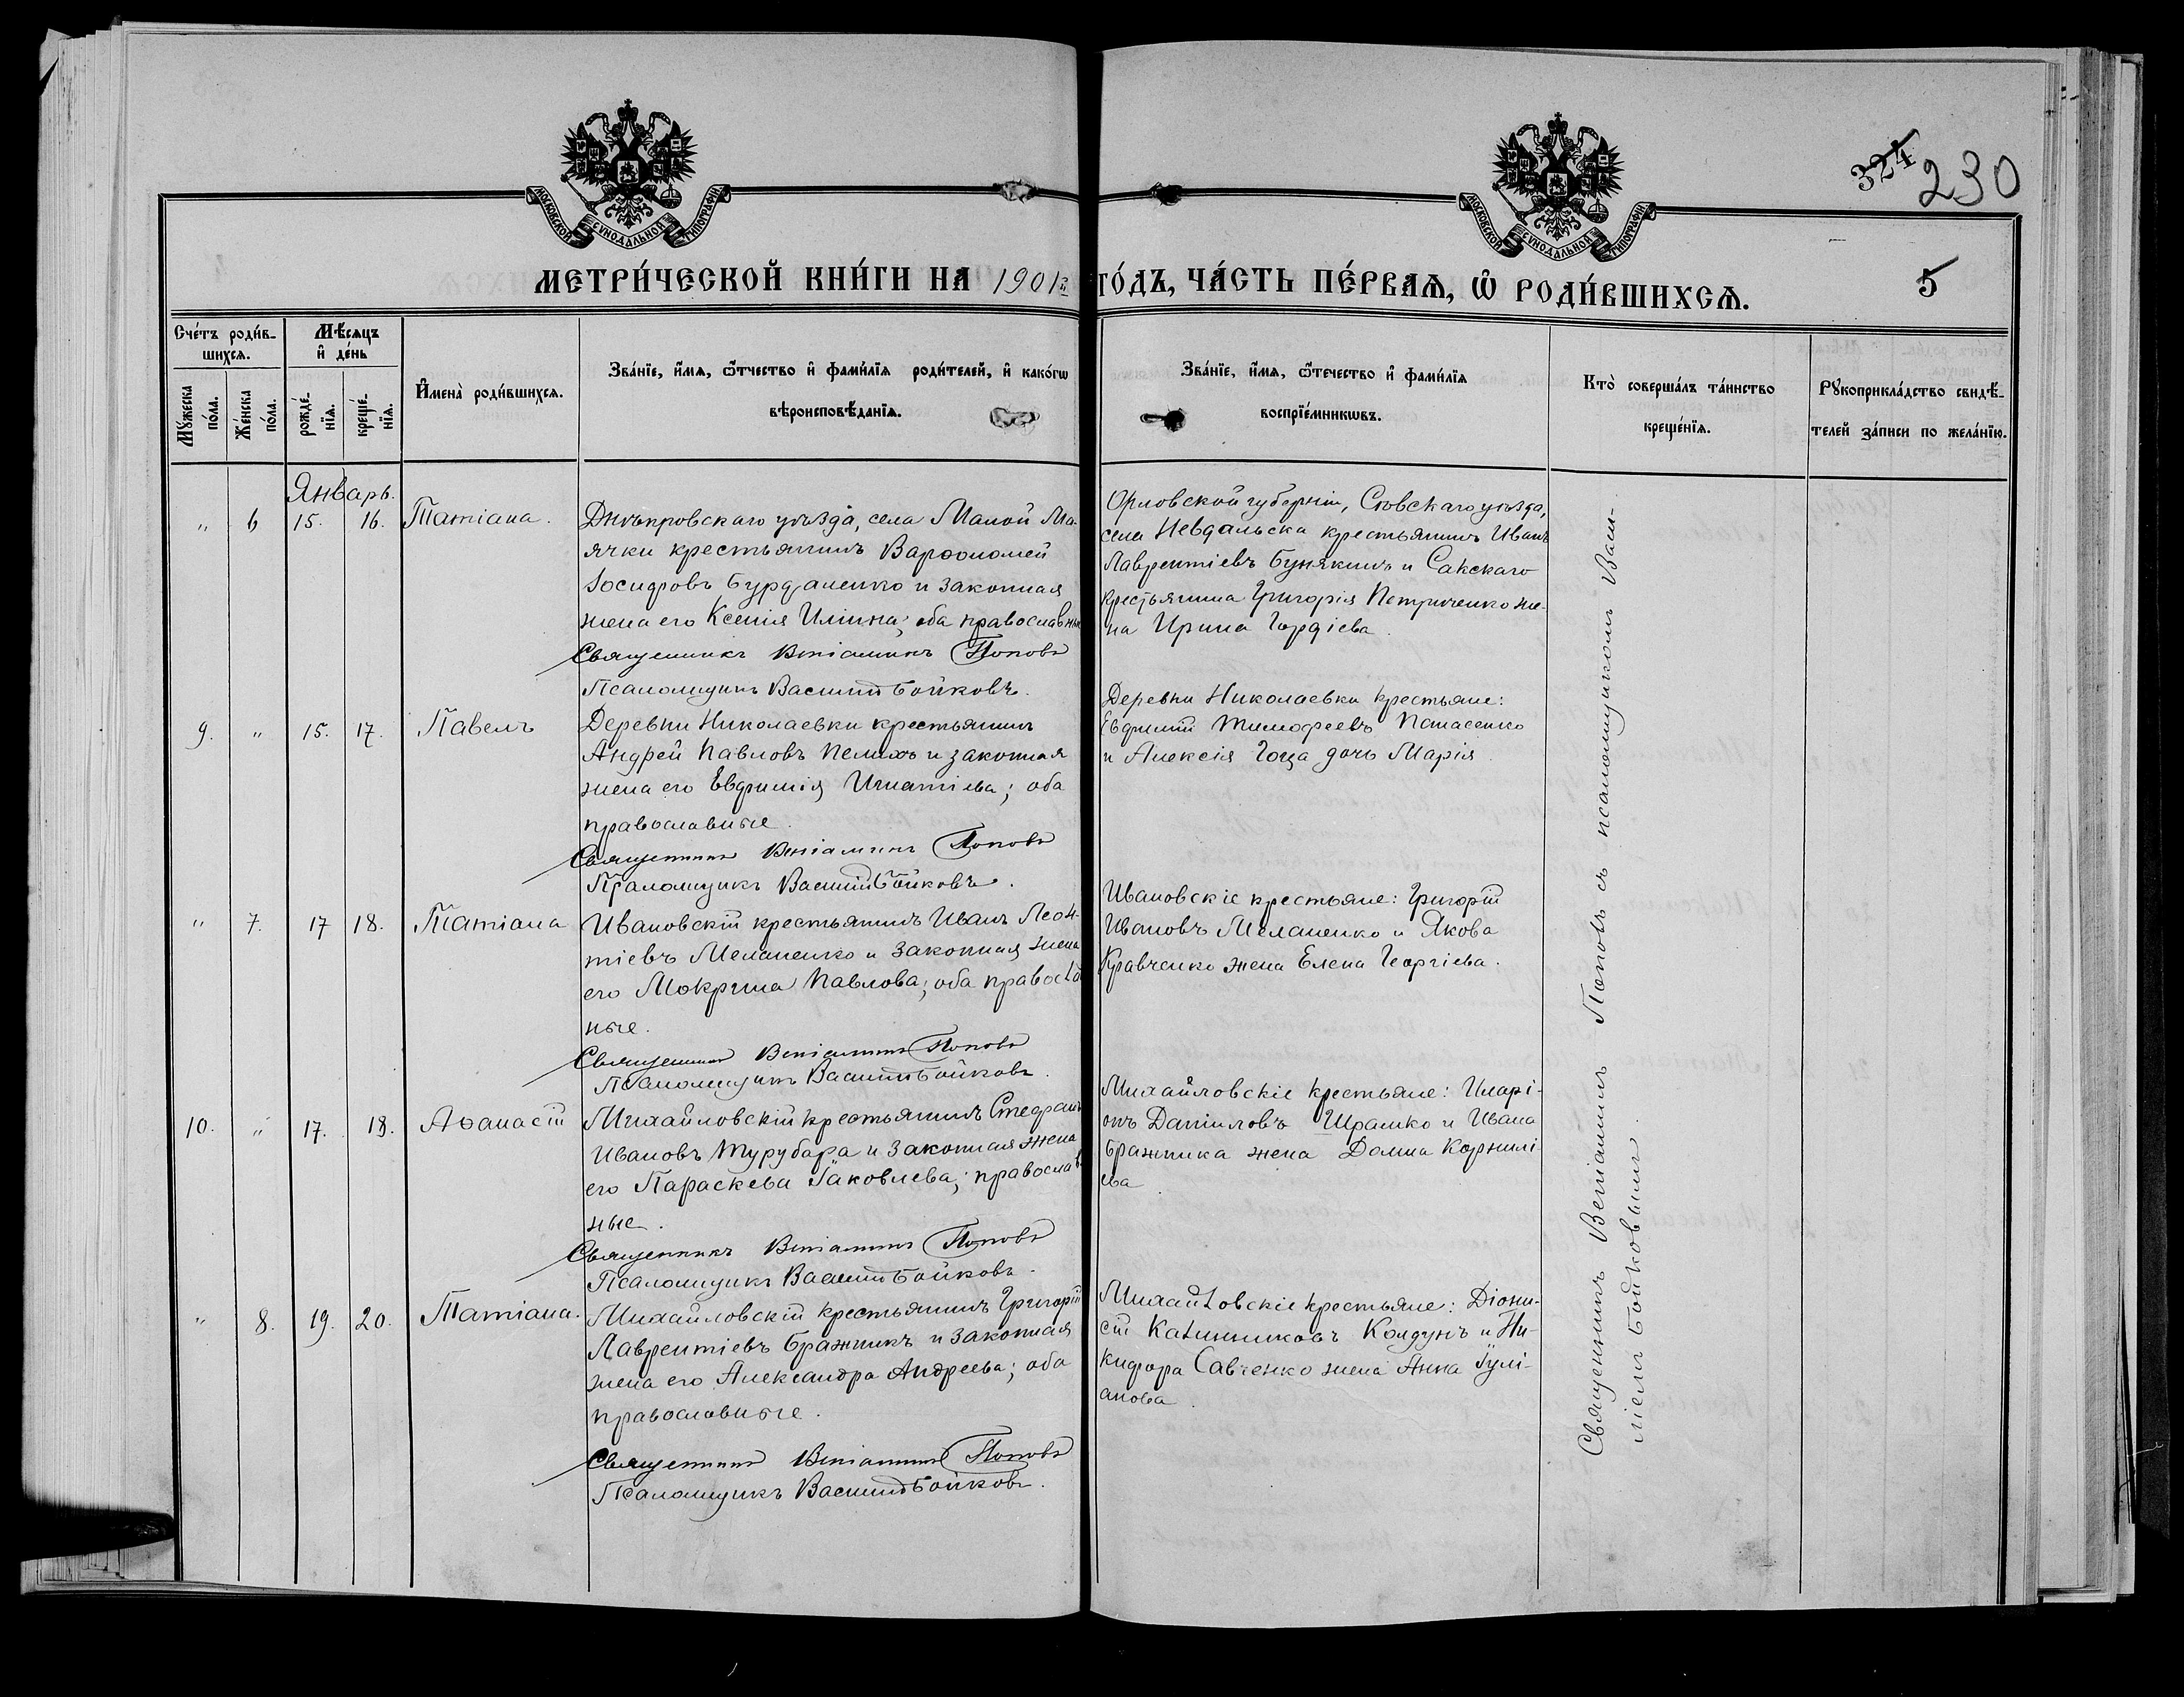 МОСКОВСКОЙ СѴНОДАЛЬНОЙ ТИПОГРАФІИ
МОСКОВСКОЙ СѴНОДАЛЬНОЙ ТИПОГРАФІИ
324 230
МЕТРИ́ЧЕСКОЙ КНИ́ГИ НА 1901й ГО́ДЪ, ЧА́СТЬ ПЕ́РВАѦ, Ѡ҆ РОДИ́ВШИХСѦ.
5
Сче́тъ роди́в-
шихсѧ.
Мѣсѧцъ
и҆ де́нь
Мꙋжеска
по́ла.
Же́нска
по́ла.
рожде́-
нїѧ.
креще́-
нїѧ.
И҆мена̀ роди́вшихсѧ.
Зва́нїе, и҆́мѧ, ѻ҆́тчество и҆ фами́лїѧ роди́телей, и҆ како́гѡ
вѣроисповѣ́данїѧ.
Зва́нїе, и҆́мѧ, ѻ҆́течество и҆ фами́лїѧ
воспрїе́мникѡвъ.
Кто̀ соверша́лъ та́инство
креще́нїѧ.
Рꙋкоприкла́дство свидѣ́-
телей за́писи по жела́нїю.
Январь.
" 6 15. 16. Татіана.
Днѣпровскаго уѣзда, села Малой Ма-
ячки крестьянинъ Варѳоломей
Іосифовъ Бурдаленко и законная
жена его Ксенія Иліина; оба православные
Священникъ Веніаминъ Поповъ
Псаломщикъ Василій Бойковъ.
Орловской губерніи, Сѣвскаго уѣзда,
села Невдальска крестьянинъ Иванъ
Лаврентіевъ Бунякинъ и Сакскаго
крестьянина Григорія Петриченко же-
на Ирина Гордіева.
9. " 15. 17. Павелъ
Деревни Николаевки крестьянинъ
Андрей Павловъ Пелихъ и законная
жена его Евфимія Игнатіева; оба
православные.
Священникъ Веніаминъ Поповъ
Псаломщикъ Василій Бойковъ.
Деревни Николаевки крестьяне:
Евфимій Тимофеевъ Панасенко
и Алексія Гоца дочь Марія.
" 7. 17 18. Татіана
Ивановскій крестьянинъ Иванъ Леон-
тіевъ Меланенко и законная жена
его Мокрина Павлова; оба правосла
ные.
Священникъ Веніаминъ Поповъ
Псаломщикъ Василій Бойковъ.
Ивановскіе крестьяне: Григорій
Ивановъ Меланенко и Якова
Кравченко жена Елена Георгіева.
10. " 17. 18. Аѳанасій
Михайловскій крестьянинъ Стефанъ
Ивановъ Турубара и законная жена
его Параскева Іаковлева; православ
ные.
Священникъ Веніаминъ Поповъ
Псаломщикъ Василій Бойковъ.
Михайловскіе крестьяне: Иларі-
онъ Даніиловъ Шрамко и Ивана
Бражника жена Домна Корнилі
ева
" 8. 19. 20. Татіана.
Михайловскій крестьянинъ Григорій
Лаврентіевъ Бражникъ и законная
жена его Александра Андреева; оба
православные.
Священникъ Веніаминъ Поповъ
Псаломщикъ Василій Бойковъ.
Михайловскіе крестьяне: Діони-
сій Калинниковъ Колдунъ и Ни-
кифора Савченко жена Анна Іулі-
анова.
Священникъ Веніаминъ Поповъ съ псаломщикомъ Васи-
ліемъ Бойковымъ.